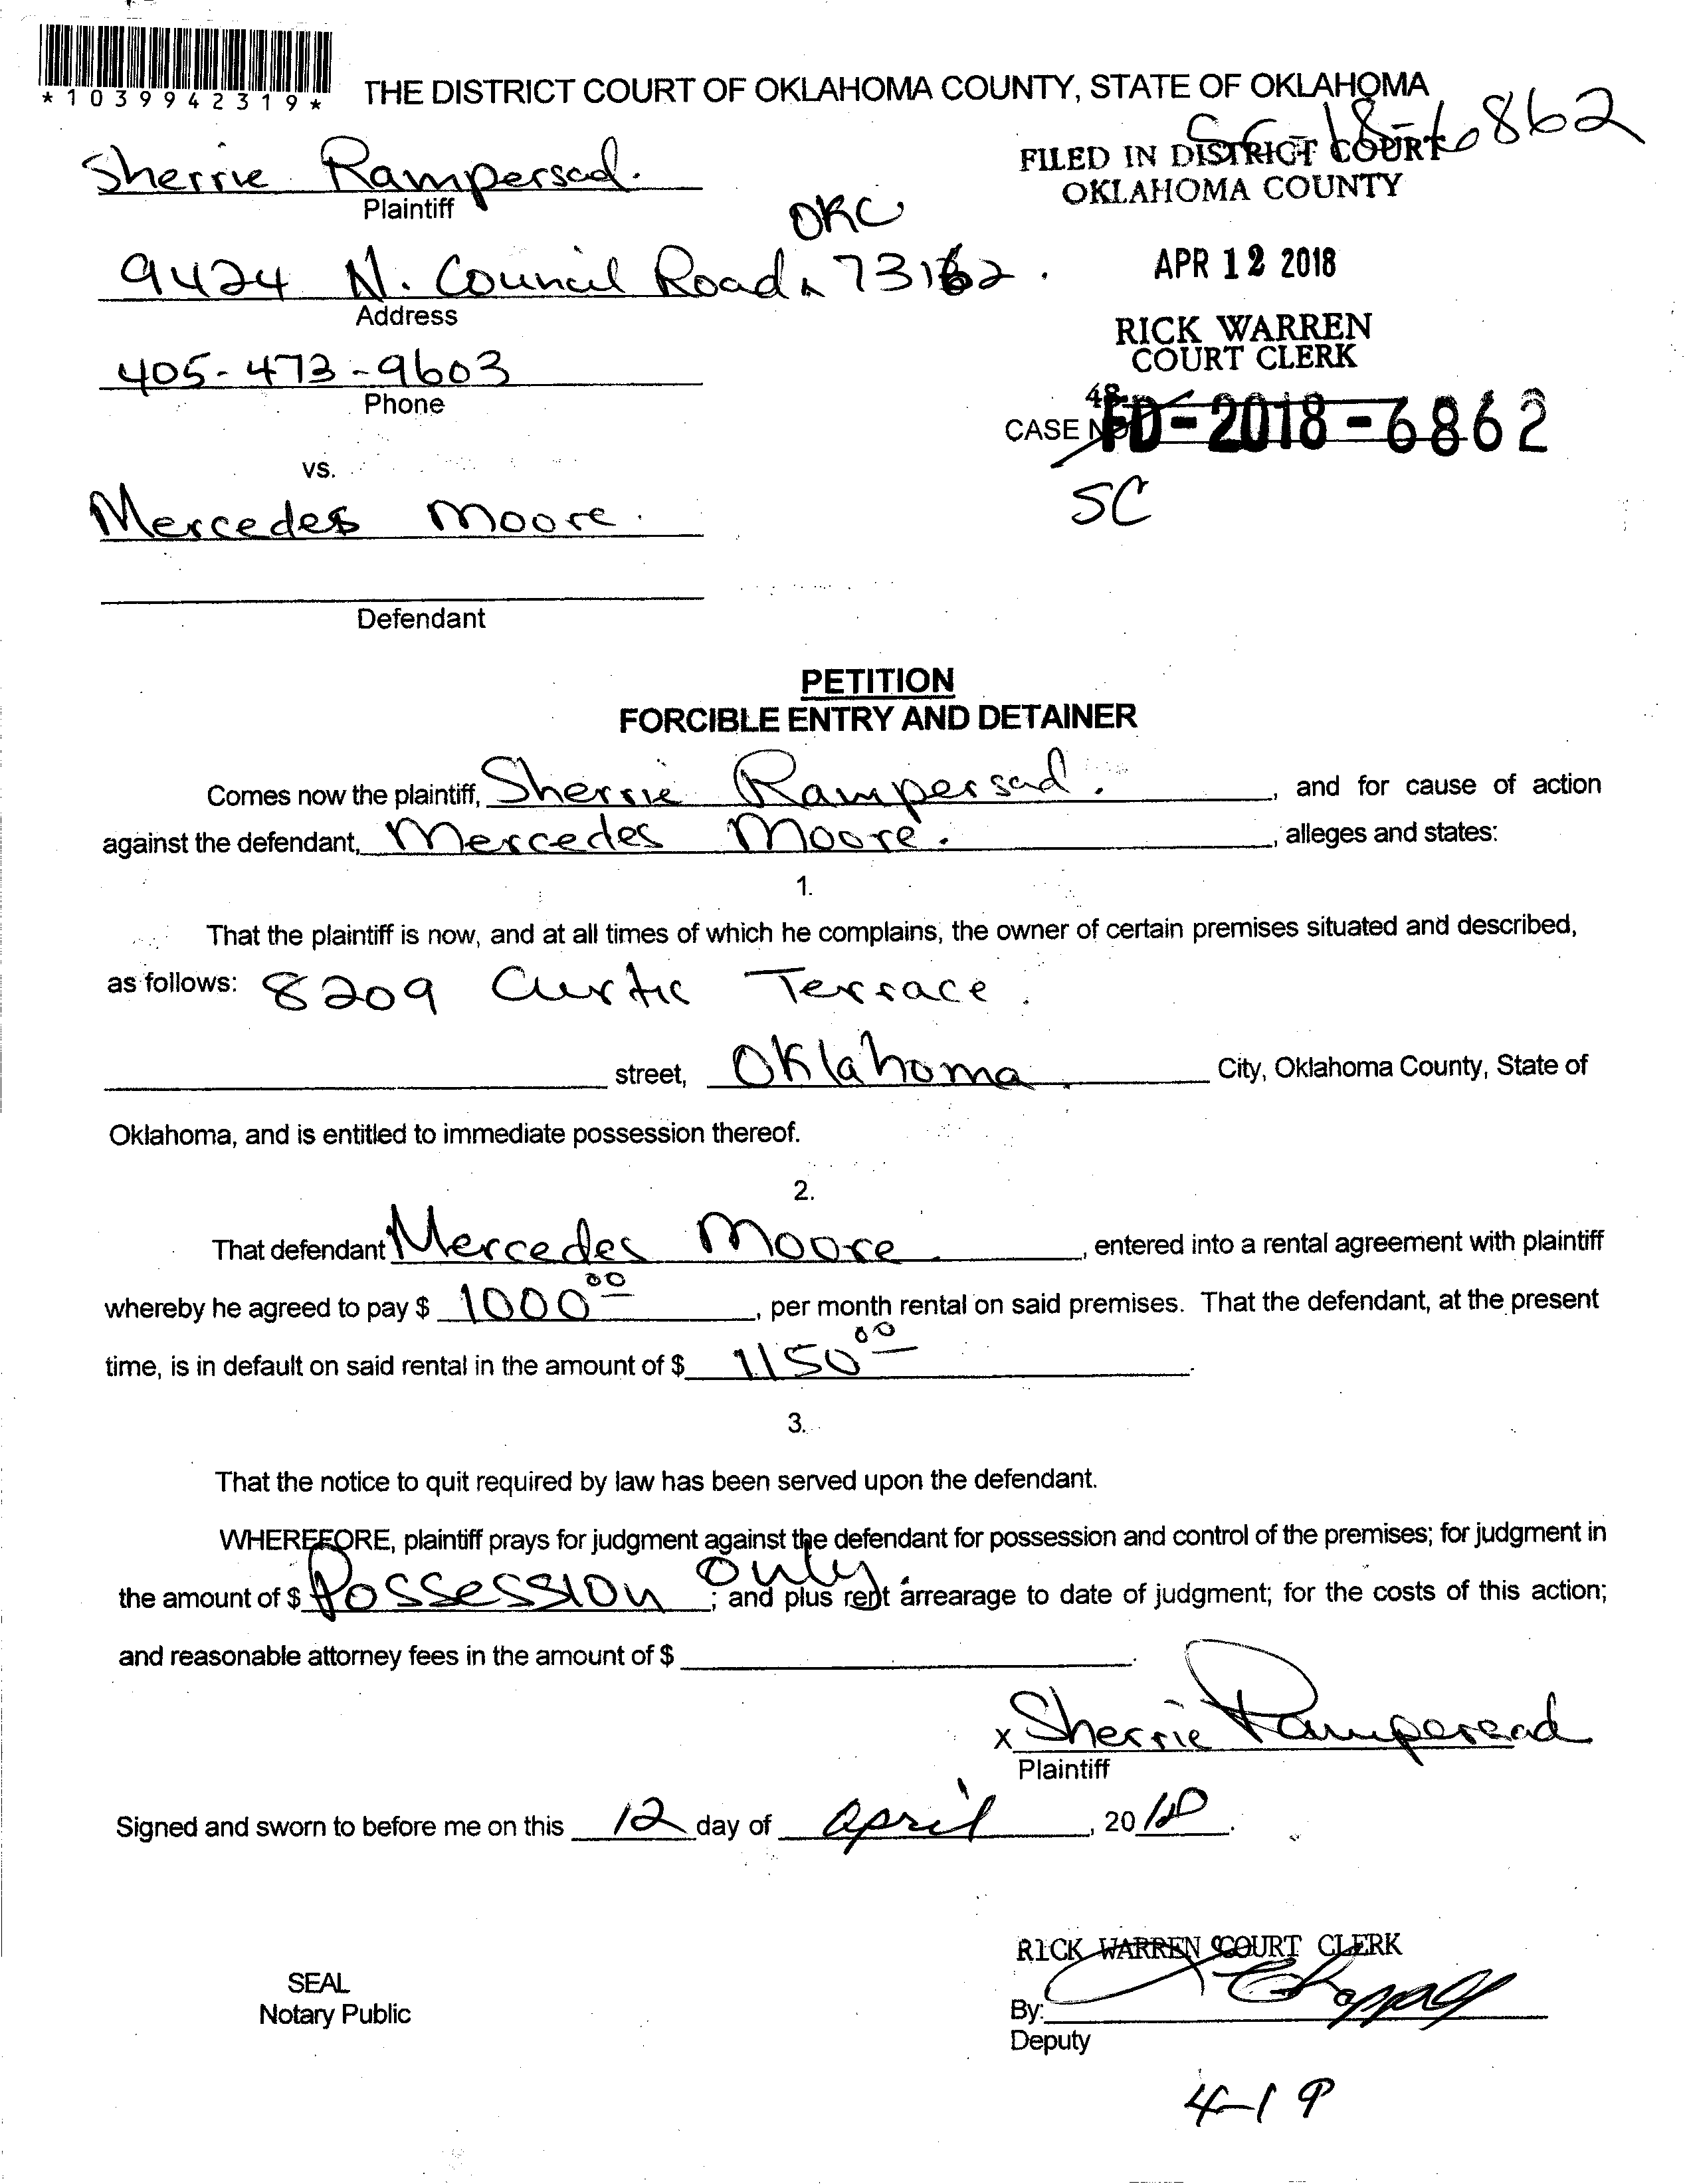 *1039942319*
THE DISTRICT COURT OF OKLAHOMA COUNTY, STATE OF OKLAHOMA
SC-18-6862
Sherrie Rampersad.
Plaintiff
FILED IN DISTRICT COURT
OKLAHOMA COUNTY
OKC
9424 N. Council Road 73162.
Address
APR 12 2018
RICK WARREN
COURT CLERK
405-473-9603
Phone
48
CASE NO. FD-2018-6862
SC
vs.
Mercedes Moore.
Defendant
PETITION
FORCIBLE ENTRY AND DETAINER
Comes now the plaintiff, Sherrie Rampersad., and for cause of action
against the defendant, Mercedes Moore., alleges and states:
1.
That the plaintiff is now, and at all times of which he complains, the owner of certain premises situated and described,
as follows: 8209 Curtis Terrace.
street, Oklahoma. City, Oklahoma County, State of
Oklahoma, and is entitled to immediate possession thereof.
2.
That defendant Mercedes Moore., entered into a rental agreement with plaintiff
whereby he agreed to pay $ 1000 00, per month rental on said premises. That the defendant, at the present
time, is in default on said rental in the amount of $ 1150 00.
3.
That the notice to quit required by law has been served upon the defendant.
WHEREFORE, plaintiff prays for judgment against the defendant for possession and control of the premises; for judgment in
the amount of $ Possession only.; and plus rent arrearage to date of judgment; for the costs of this action;
and reasonable attorney fees in the amount of $
x Sherrie Rampersad
Plaintiff
Signed and sworn to before me on this 12 day of April, 2018.
RICK WARREN COURT CLERK
SEAL
Notary Public
By:
Deputy
4-19